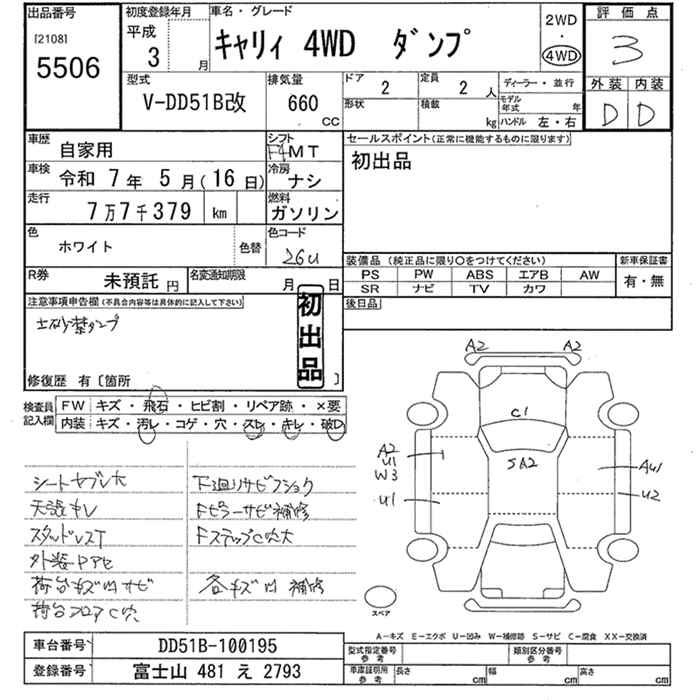 出品番号
[2108]
5506
初度登録年月
平成
3 月
車名・グレード
キャリィ 4WD ダンプ
2WD
・
4WD
評価点
3
外装 内装
D D
型式
V-DD51B改
排気量
660
CC
ドア
2
定員
2 人
形状
積載
kg
ディーラー・並行
モデル年式 年
ハンドル 左・右
車歴
自家用
シフト
F4MT
車検
令和 7年 5月(16日)
冷房
ナシ
走行
7万7千379 km
燃料
ガソリン
色
ホワイト
色替
色コード
26U
R券
未預託 円
名変通知期限
月 日
セールスポイント(正常に機能するものに限ります)
初出品
装備品(純正品に限り○をつけてください)
PS PW ABS エアB AW
SR ナビ TV カワ
新車保証書
有・無
後日品
注意事項申告欄(不具合内容等は具体的に記入して下さい)
土砂禁ダンプ
初出品
修復歴 有〔箇所 〕
検査員記入欄
FW キズ・飛石・ヒビ割・リペア跡・×要
内装 キズ・汚レ・コゲ・穴・スレ・キレ・破D
シートヤブレ大
天張キレ
スタッドレスT
外装Pアセ
荷台キズ凹サビ
荷台フロアC穴
下廻りサビフショク
Fピラーサビ補修
FステップC穴大
各キズ凹補修
A2 A2
C1
A2
U1
W3
SA2
AU1
U1
U2
スペア
A-キズ E-エクボ U-凹み W-補修跡 S-サビ C-腐食 XX-交換済
車台番号
DD51B-100195
登録番号
富士山 481 え 2793
型式指定番号
参考
類別区分番号
参考
車庫証明用
参考
長さ cm 幅 cm 高さ cm